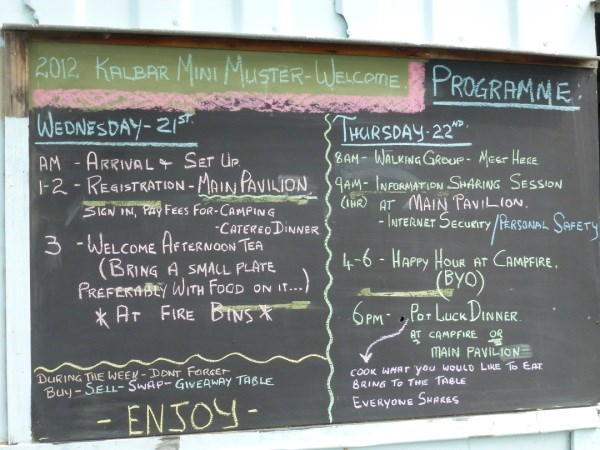 2012 KALBAR MINI MUSTER-WELCOME.
PROGRAMME.
WEDNESDAY-21ST.
AM - ARRIVAL & SET UP.
1-2 - REGISTRATION - MAIN PAVILION
SIGN IN, PAY FEES FOR-CAMPING
-CATERED DINNER
3 - WELCOME AFTERNOON TEA
(BRING A SMALL PLATE
PREFERABLY WITH FOOD ON IT...)
* AT FIRE BINS *
DURING THE WEEK - DONT FORGET
BUY-SELL-SWAP-GIVEAWAY TABLE
- ENJOY -
THURSDAY-22ND.
8AM - WALKING GROUP - MEET HERE
9AM - INFORMATION SHARING SESSION
(1HR) AT MAIN PAVILION.
-INTERNET SECURITY/PERSONAL SAFETY
4-6 - HAPPY HOUR AT CAMPFIRE.
(BYO)
6PM - POT LUCK DINNER.
AT CAMPFIRE OR
MAIN PAVILION
COOK WHAT YOU WOULD LIKE TO EAT
BRING TO THE TABLE
EVERYONE SHARES